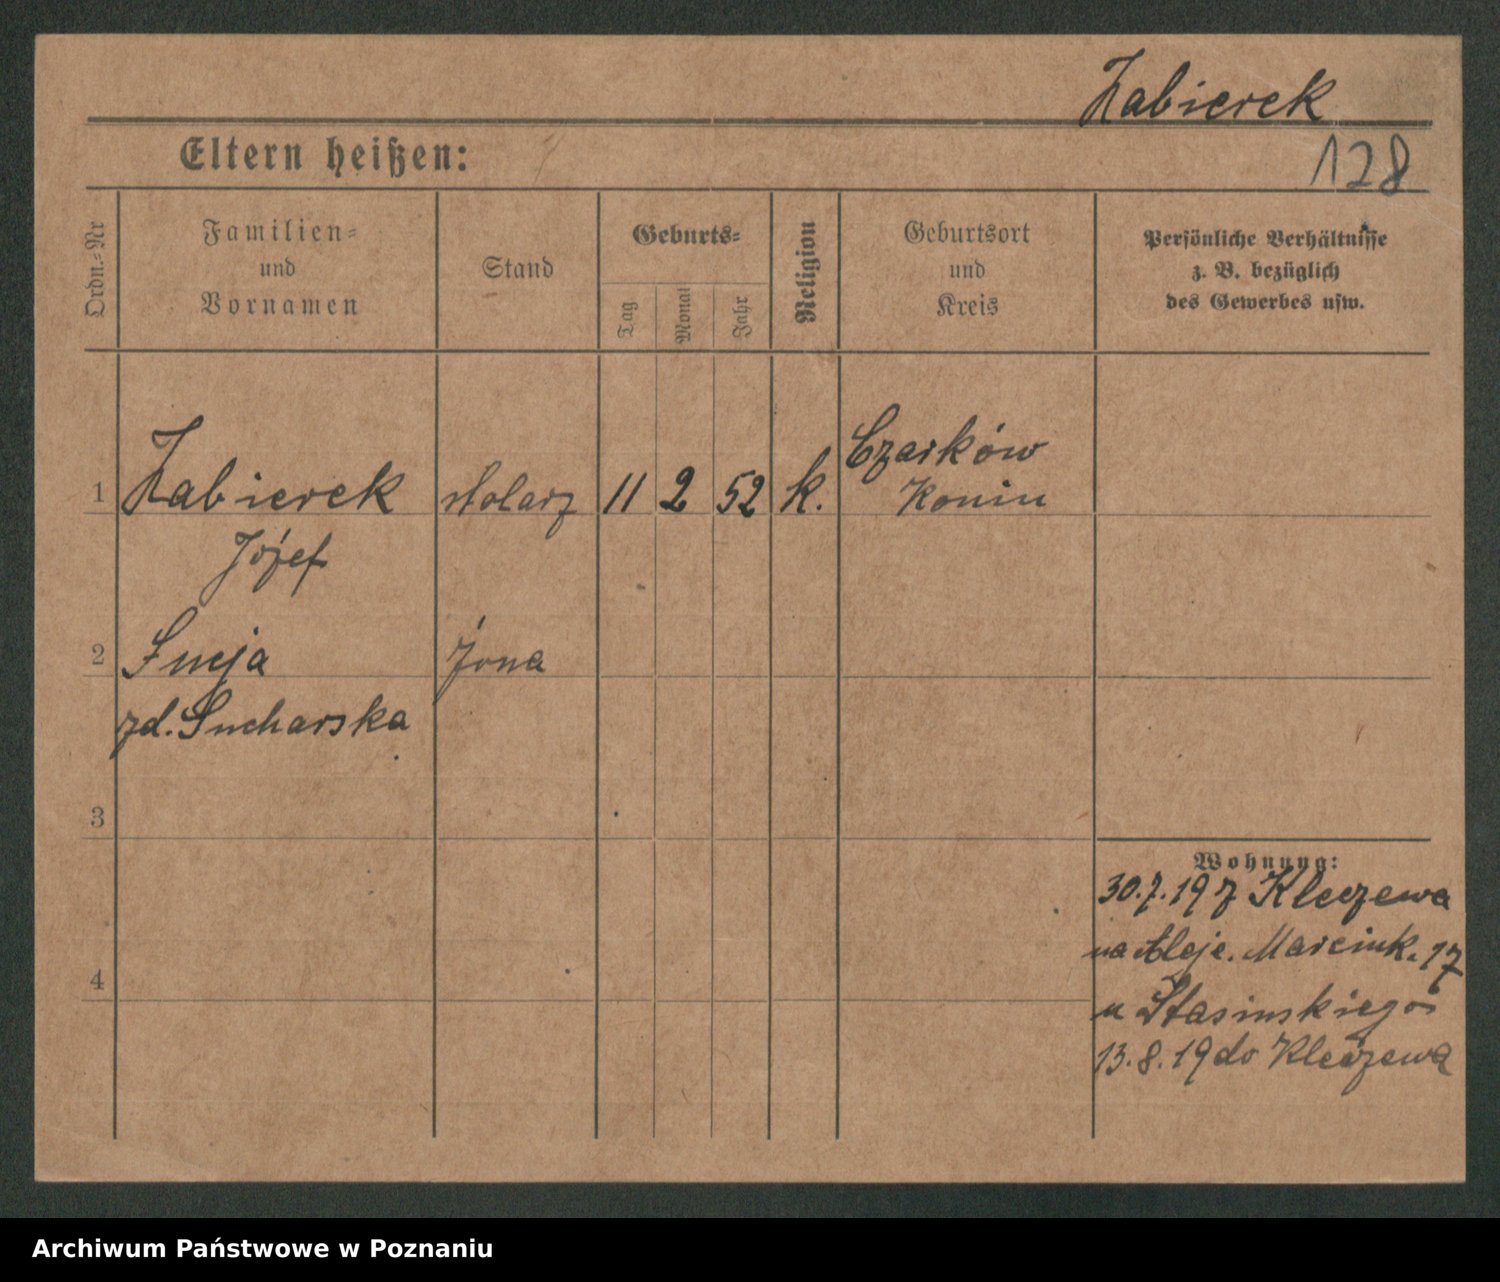 Zabierek
128
Eltern heißen:
Ordn.-Nr
Familien-
und
Vornamen
Stand
Geburts-
Tag
Monat
Jahr
Religion
Geburtsort
und
Kreis
Persönliche Verhältnisse
z. B. bezüglich
des Gewerbes usw.
1 Zabierek stolarz 11 2 52 k. Czarków
Konin
Józef
2 Łucja żona
zd. Sucharska
3
4
Wohnung:
30.7.19 z Kleczewa
na Aleje. Marcink. 17
u Stasinskiego
13.8.19 do Kleczewa
Archiwum Państwowe w Poznaniu